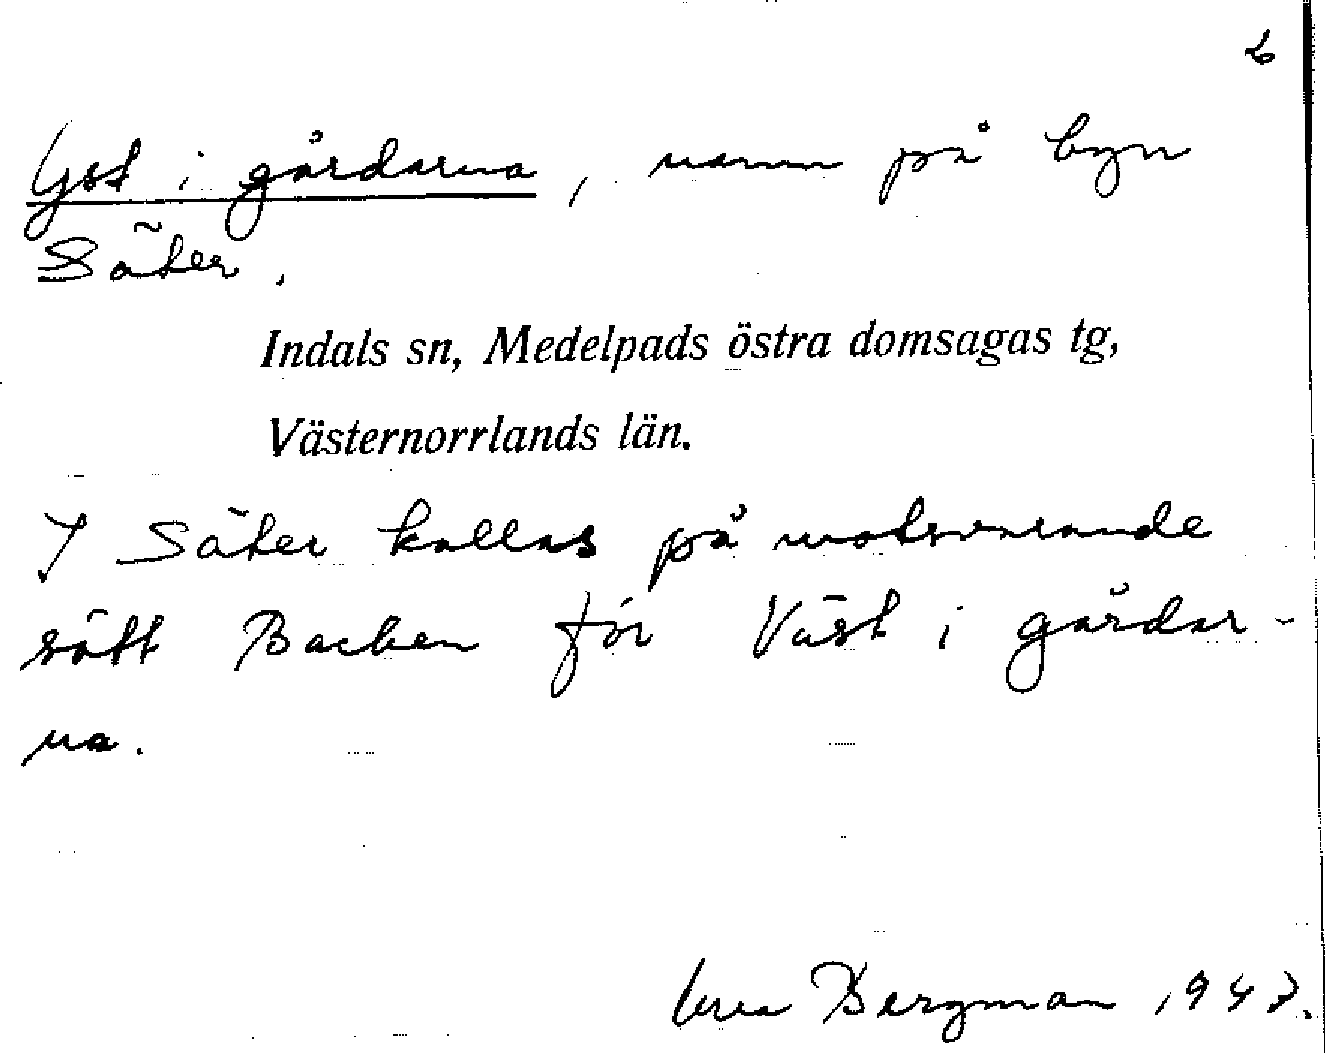 6
Yst i gårdarna, namn på byn
Säter.
Indals sn, Medelpads östra domsagas tg,
Västernorrlands län.
I Säter kallas på motsvarande
sätt Backen för Väst i gårdar-
na.
Bergman 194